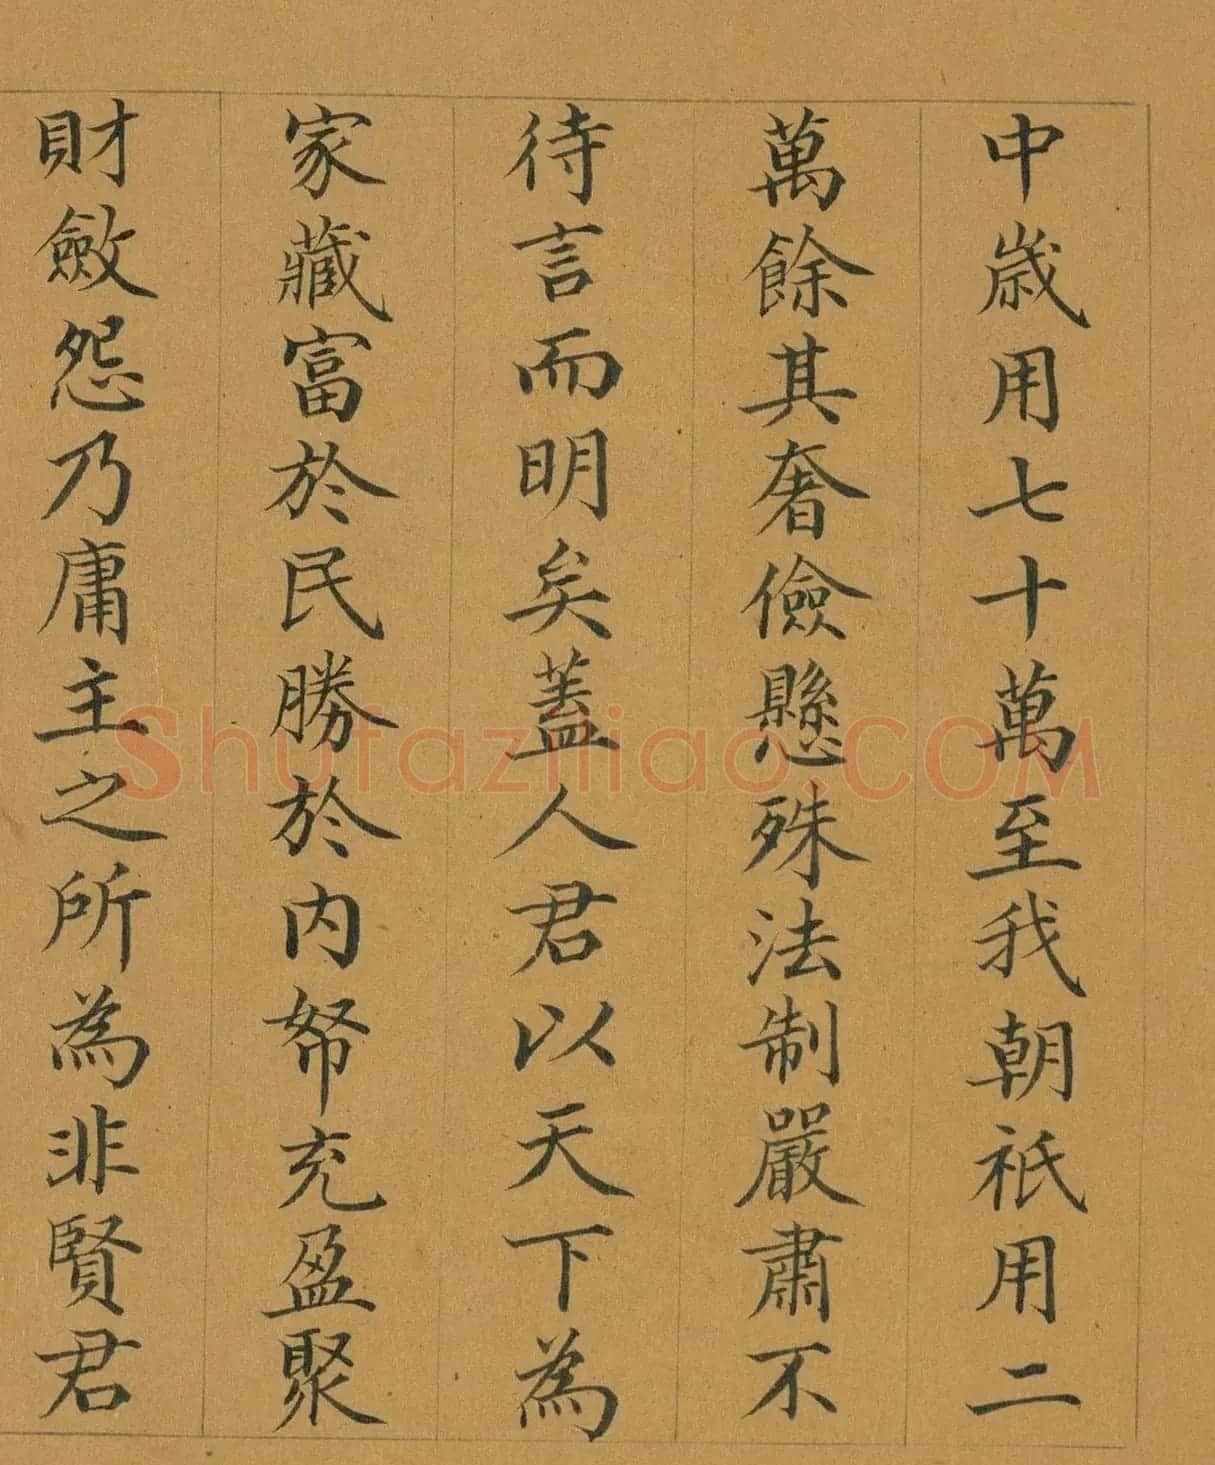 中歲用七十萬至我朝祇用二
萬餘其奢儉懸殊法制嚴肅不
待言而明矣蓋人君以天下為
家藏富於民勝於內帑充盈聚
財斂怨乃庸主之所為非賢君
Shufaziliao.COM